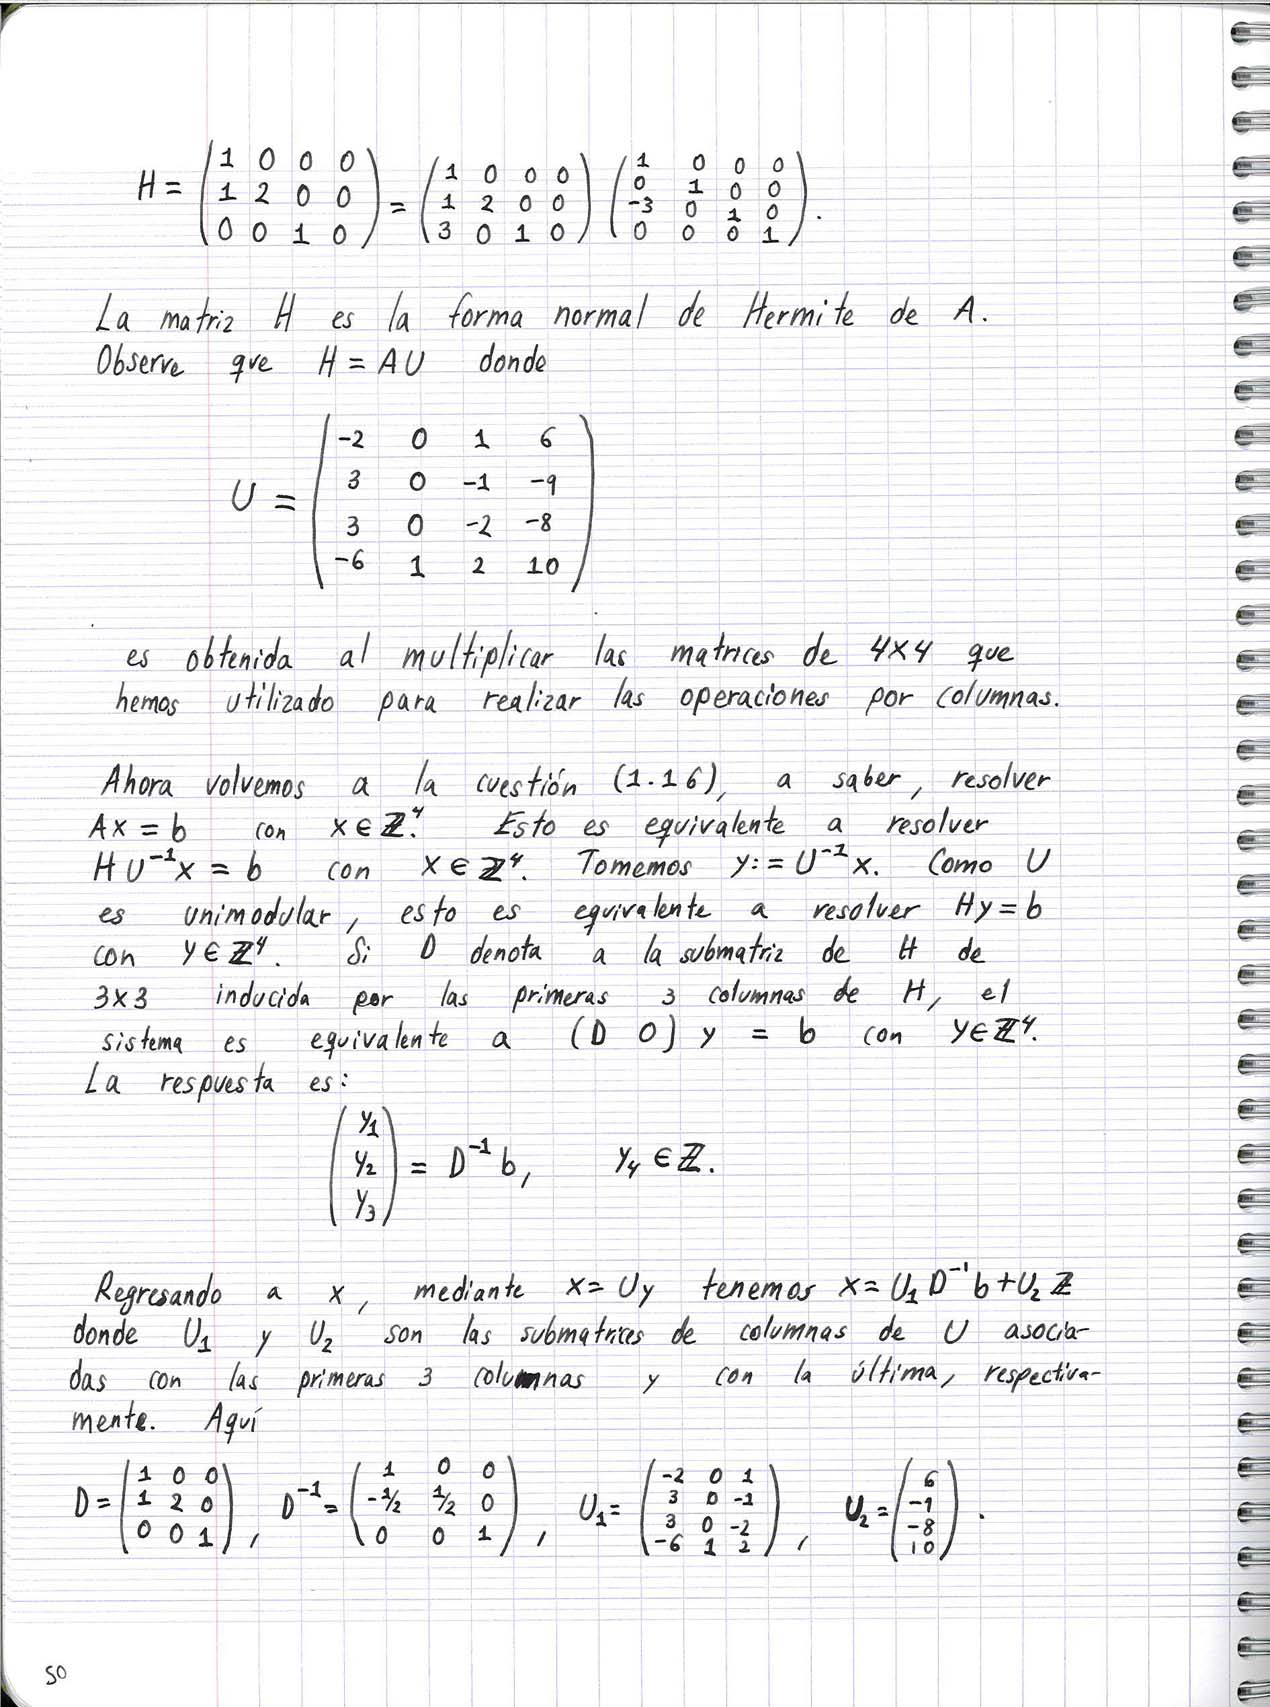 H = ( 1 0 0 0 ; 1 2 0 0 ; 0 0 1 0 ) = ( 1 0 0 0 ; 1 2 0 0 ; 3 0 1 0 ) ( 1 0 0 0 ; 0 1 0 0 ; -3 0 1 0 ; 0 0 0 1 ).
La matriz H es la forma normal de Hermite de A.
Observe que H = AU donde
U = ( -2 0 1 6 ; 3 0 -1 -9 ; 3 0 -2 -8 ; -6 1 2 10 )
es obtenida al multiplicar las matrices de 4x4 que
hemos utilizado para realizar las operaciones por columnas.
Ahora volvemos a la cuestión (1.16), a saber, resolver
Ax = b con x ∈ ℤ⁴. Esto es equivalente a resolver
HU⁻¹x = b con x ∈ ℤ⁴. Tomemos y := U⁻¹x. Como U
es unimodular, esto es equivalente a resolver Hy = b
con y ∈ ℤ⁴. Si D denota a la submatriz de H de
3x3 inducida por las primeras 3 columnas de H, el
sistema es equivalente a (D 0) y = b con y ∈ ℤ⁴.
La respuesta es:
( y₁ ; y₂ ; y₃ ) = D⁻¹b, y₄ ∈ ℤ.
Regresando a x, mediante x = Uy tenemos x = U₁D⁻¹b + U₂ℤ
donde U₁ y U₂ son las submatrices de columnas de U asocia-
das con las primeras 3 columnas y con la última, respectiva-
mente. Aquí
D = ( 1 0 0 ; 1 2 0 ; 0 0 1 ), D⁻¹ = ( 1 0 0 ; -1/2 1/2 0 ; 0 0 1 ), U₁ = ( -2 0 1 ; 3 0 -1 ; 3 0 -2 ; -6 1 2 ), U₂ = ( 6 ; -9 ; -8 ; 10 ).
50